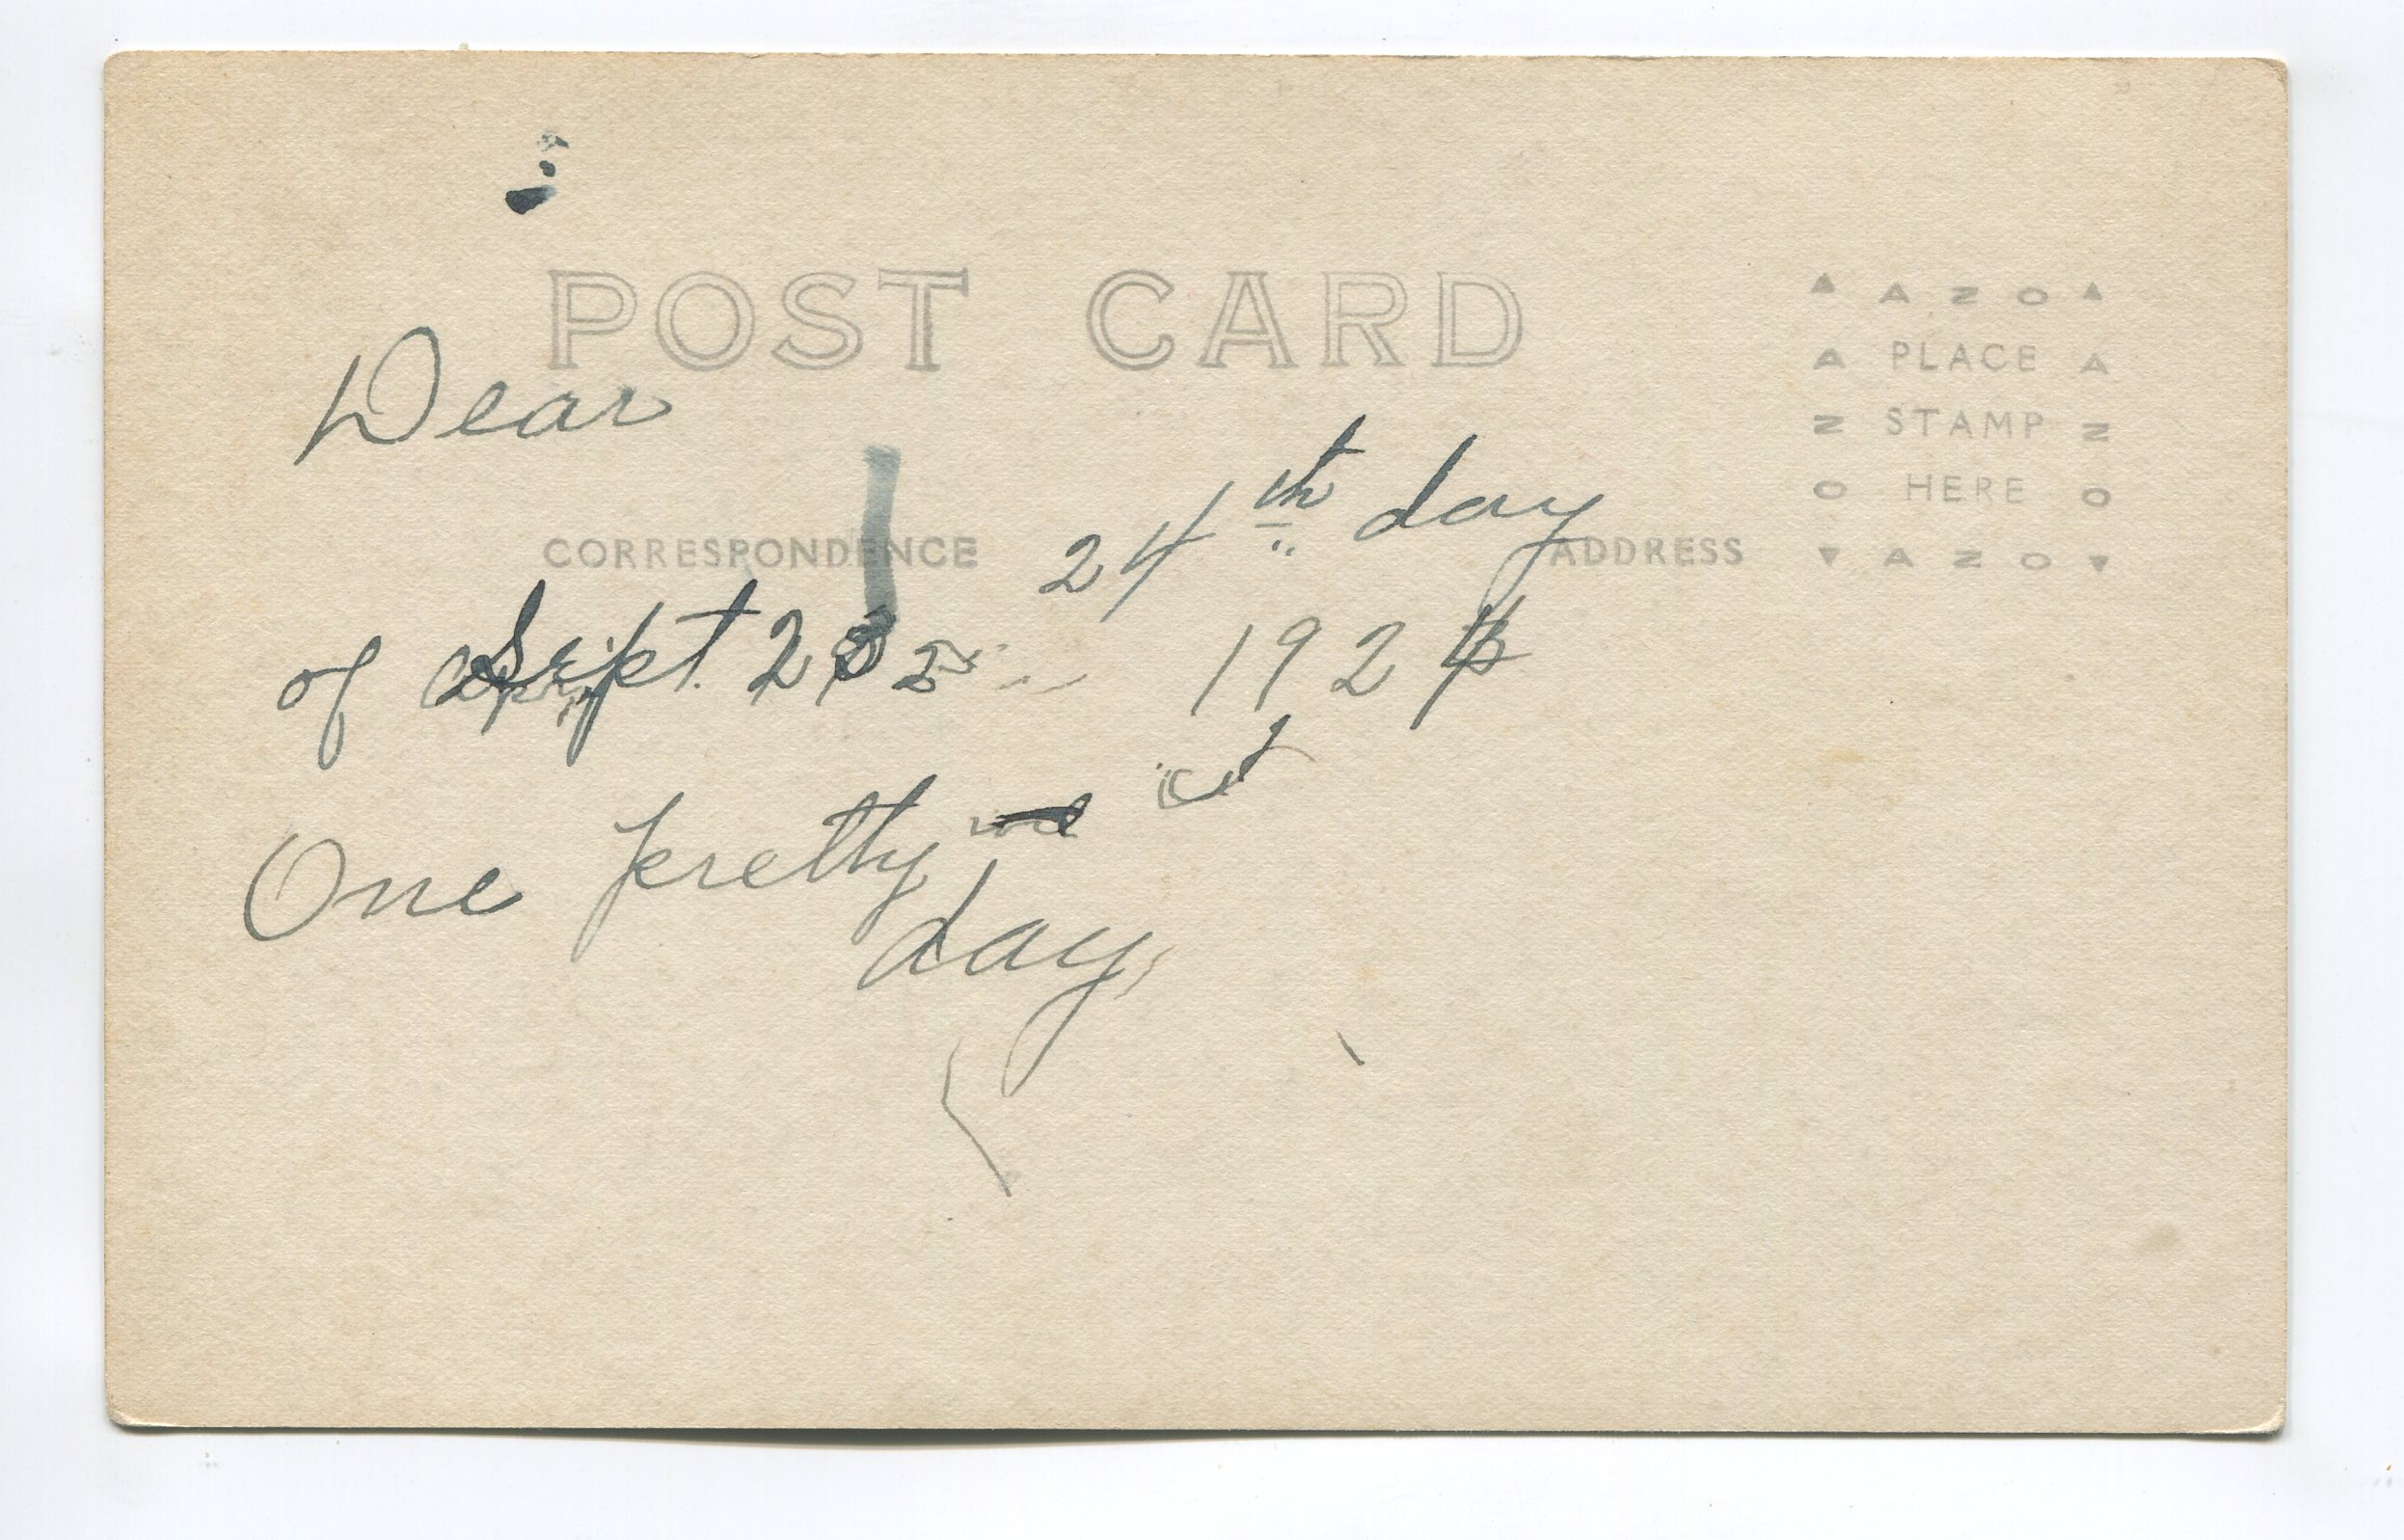 POST CARD
AZO
PLACE
STAMP
HERE
AZO
AZO
AZO
Dear
CORRESPONDENCE
ADDRESS
24th day
of Sept. 192
One pretty
day